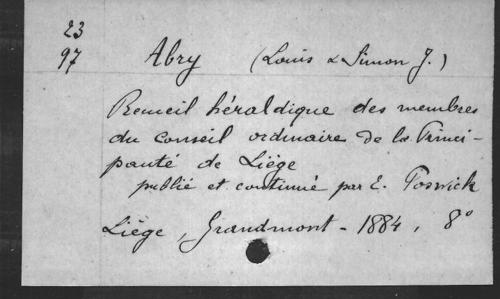 23
97 Abry (Louis & Simon J.)
Recueil héraldique des membres
du Conseil ordinaire de la Princi-
pauté de Liége
publié et continué par E. Poswick
Liége, Grandmont - 1884, 8°